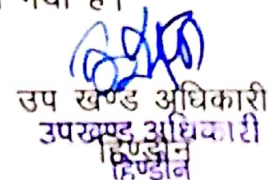 गया है।
उप खण्ड अधिकारी
उपखण्ड अधिकारी
हिण्डौन
हिण्डौन